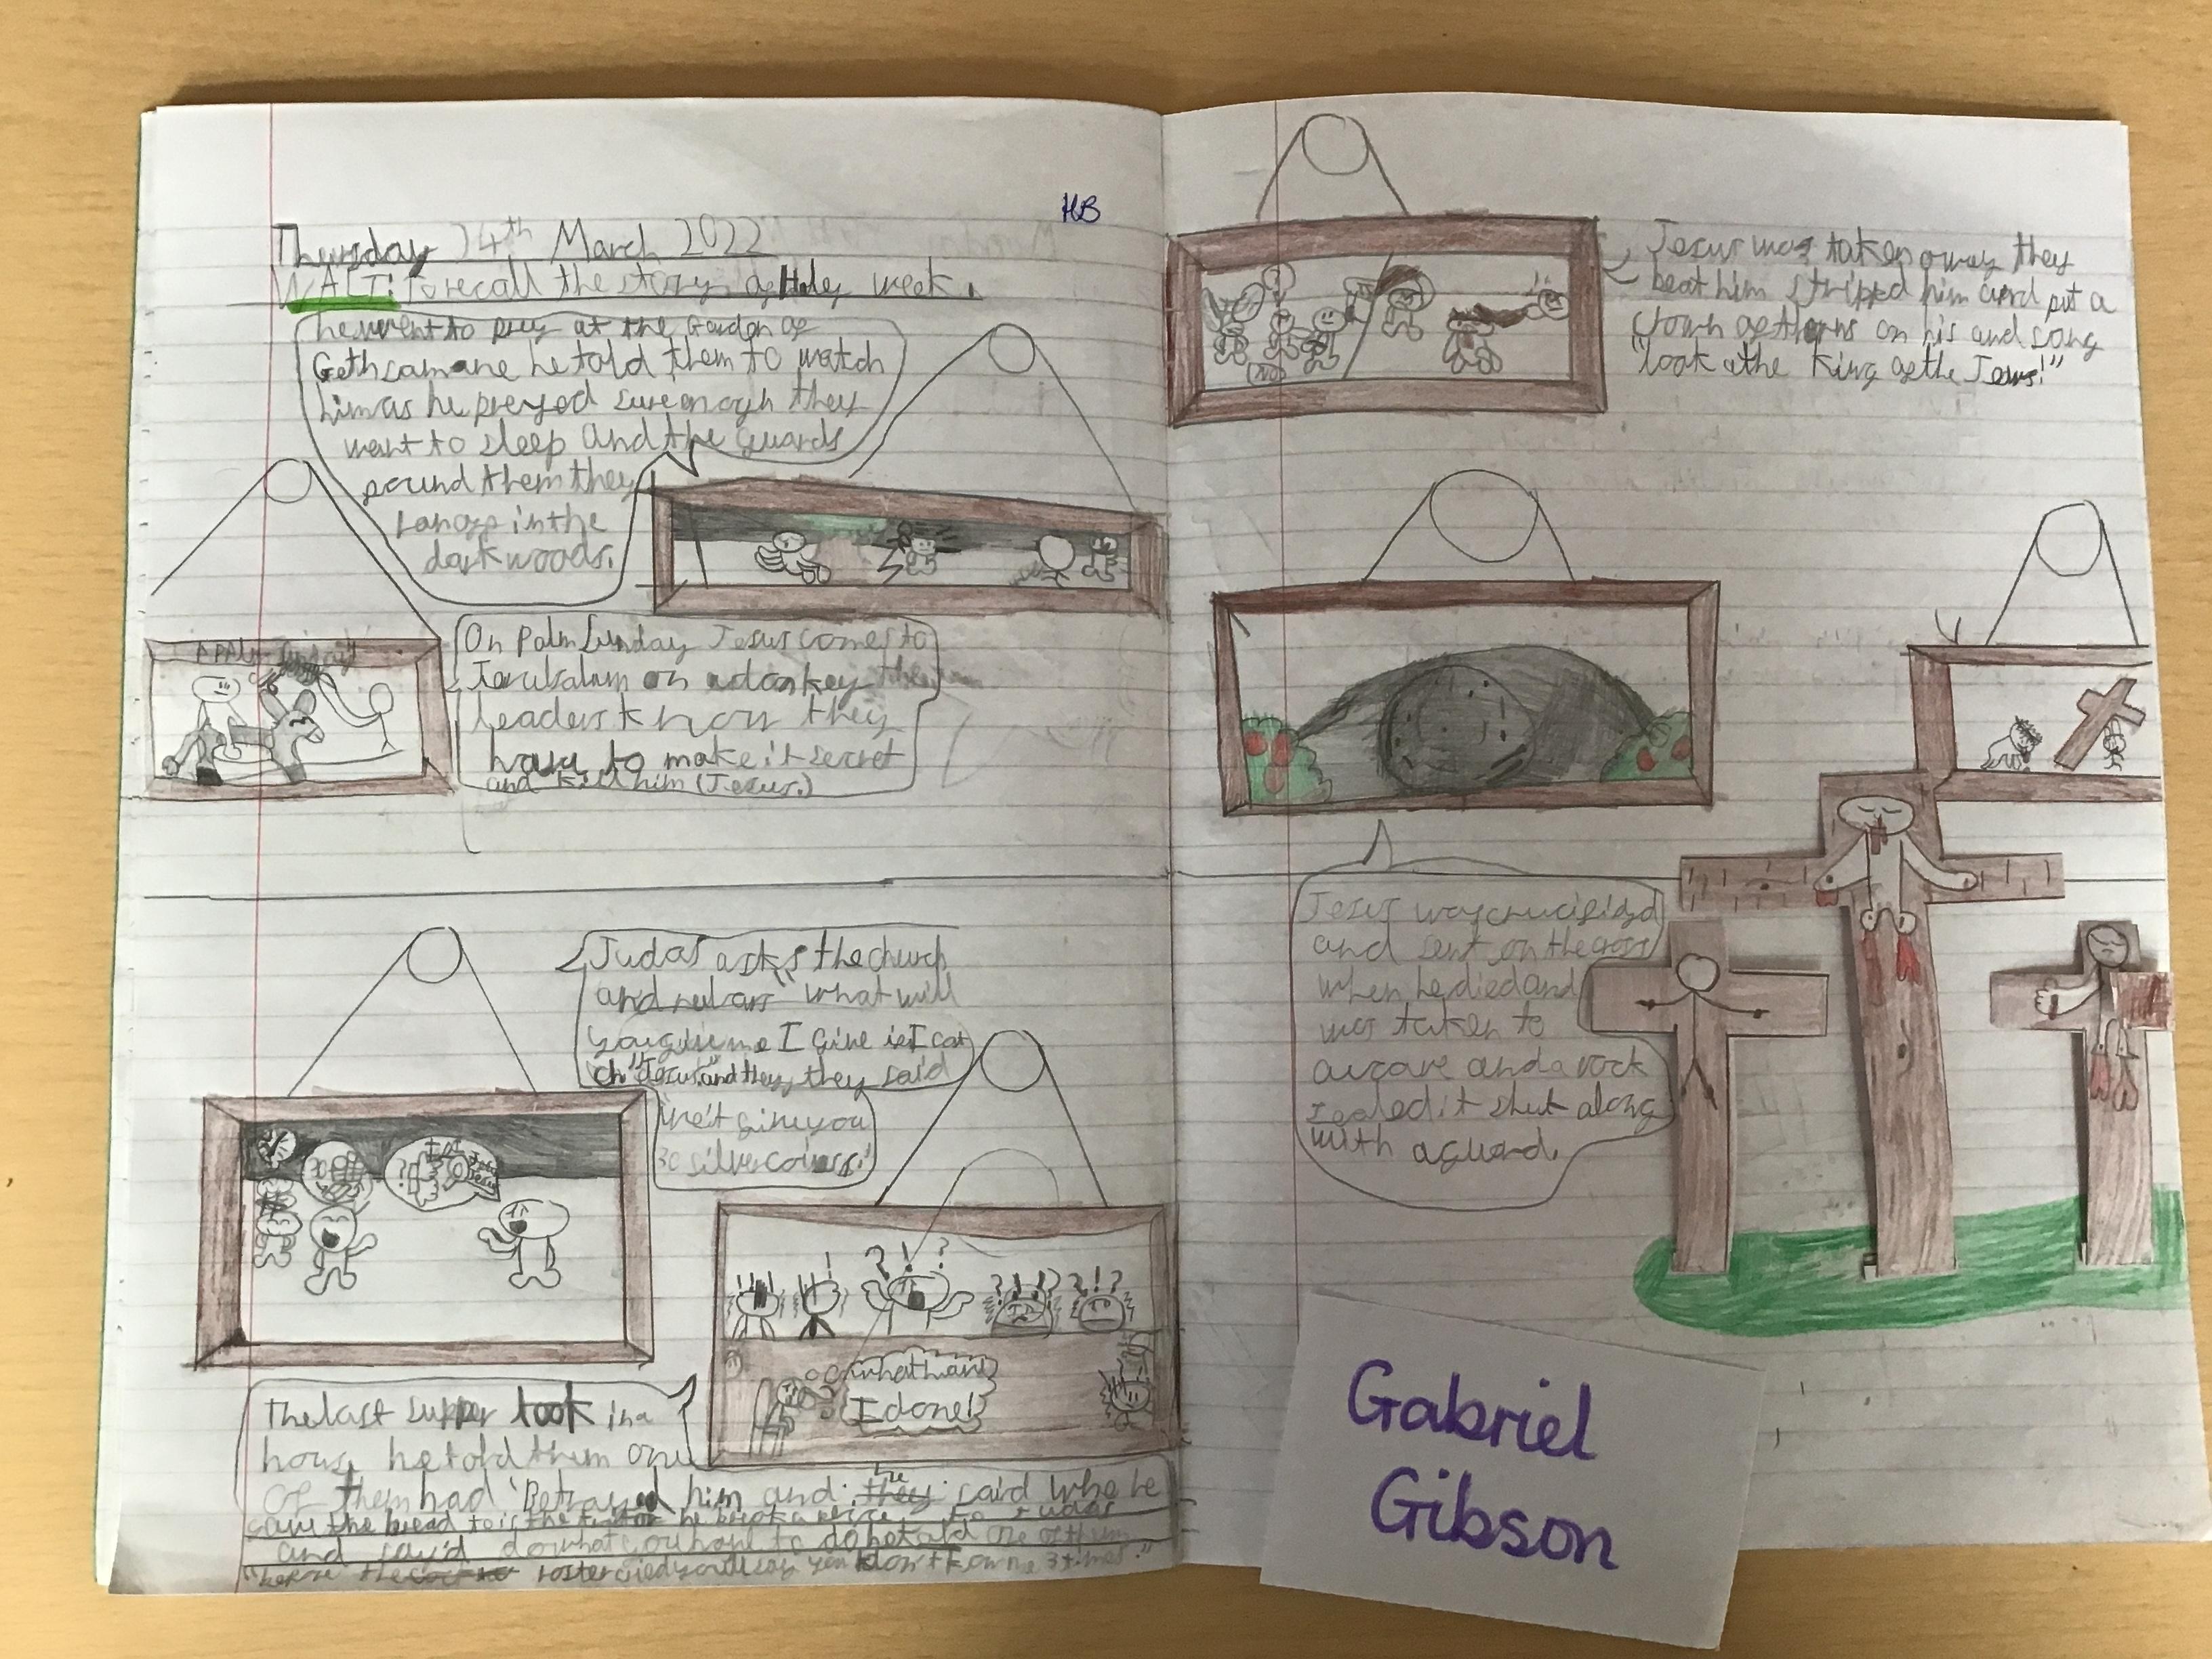 HB
Thursday 14th March 2022
WALT: to recall the story of Holy week.
he went to prey at the Gardon of
Gethsamane he told them to watch
him as he preyed sure enough they
want to sleep and the guards
found them they
ran off in the
dark woods.
On Palm Sunday Jesus comes to
on a donkey the
leaders know they
have to make it secret
and kill him (Jesus.)
Judas asks the church
and "what will
you give me I give if I cat
ch "Jesus" and they they said
we'll give you
30 silver coins.'
what have
I done!
The last supper took in a
hous he told them one
of them had 'Betrayed him and they he said who he
gave the bread to is the he a piece to Judas
and say'd do what you have to do he told one of them
"before the roster cried you'll say you don't know me 3 times."
Jesus was taken away they
beat him stripped him and put a
crown of thorns on his and song
"look at the King of the Jews!"
Jesus was crucifiyd
and sent on the cross
when he died and
was taken to
a cave and a rock
sealed it shut along
with a guard.
Gabriel
Gibson